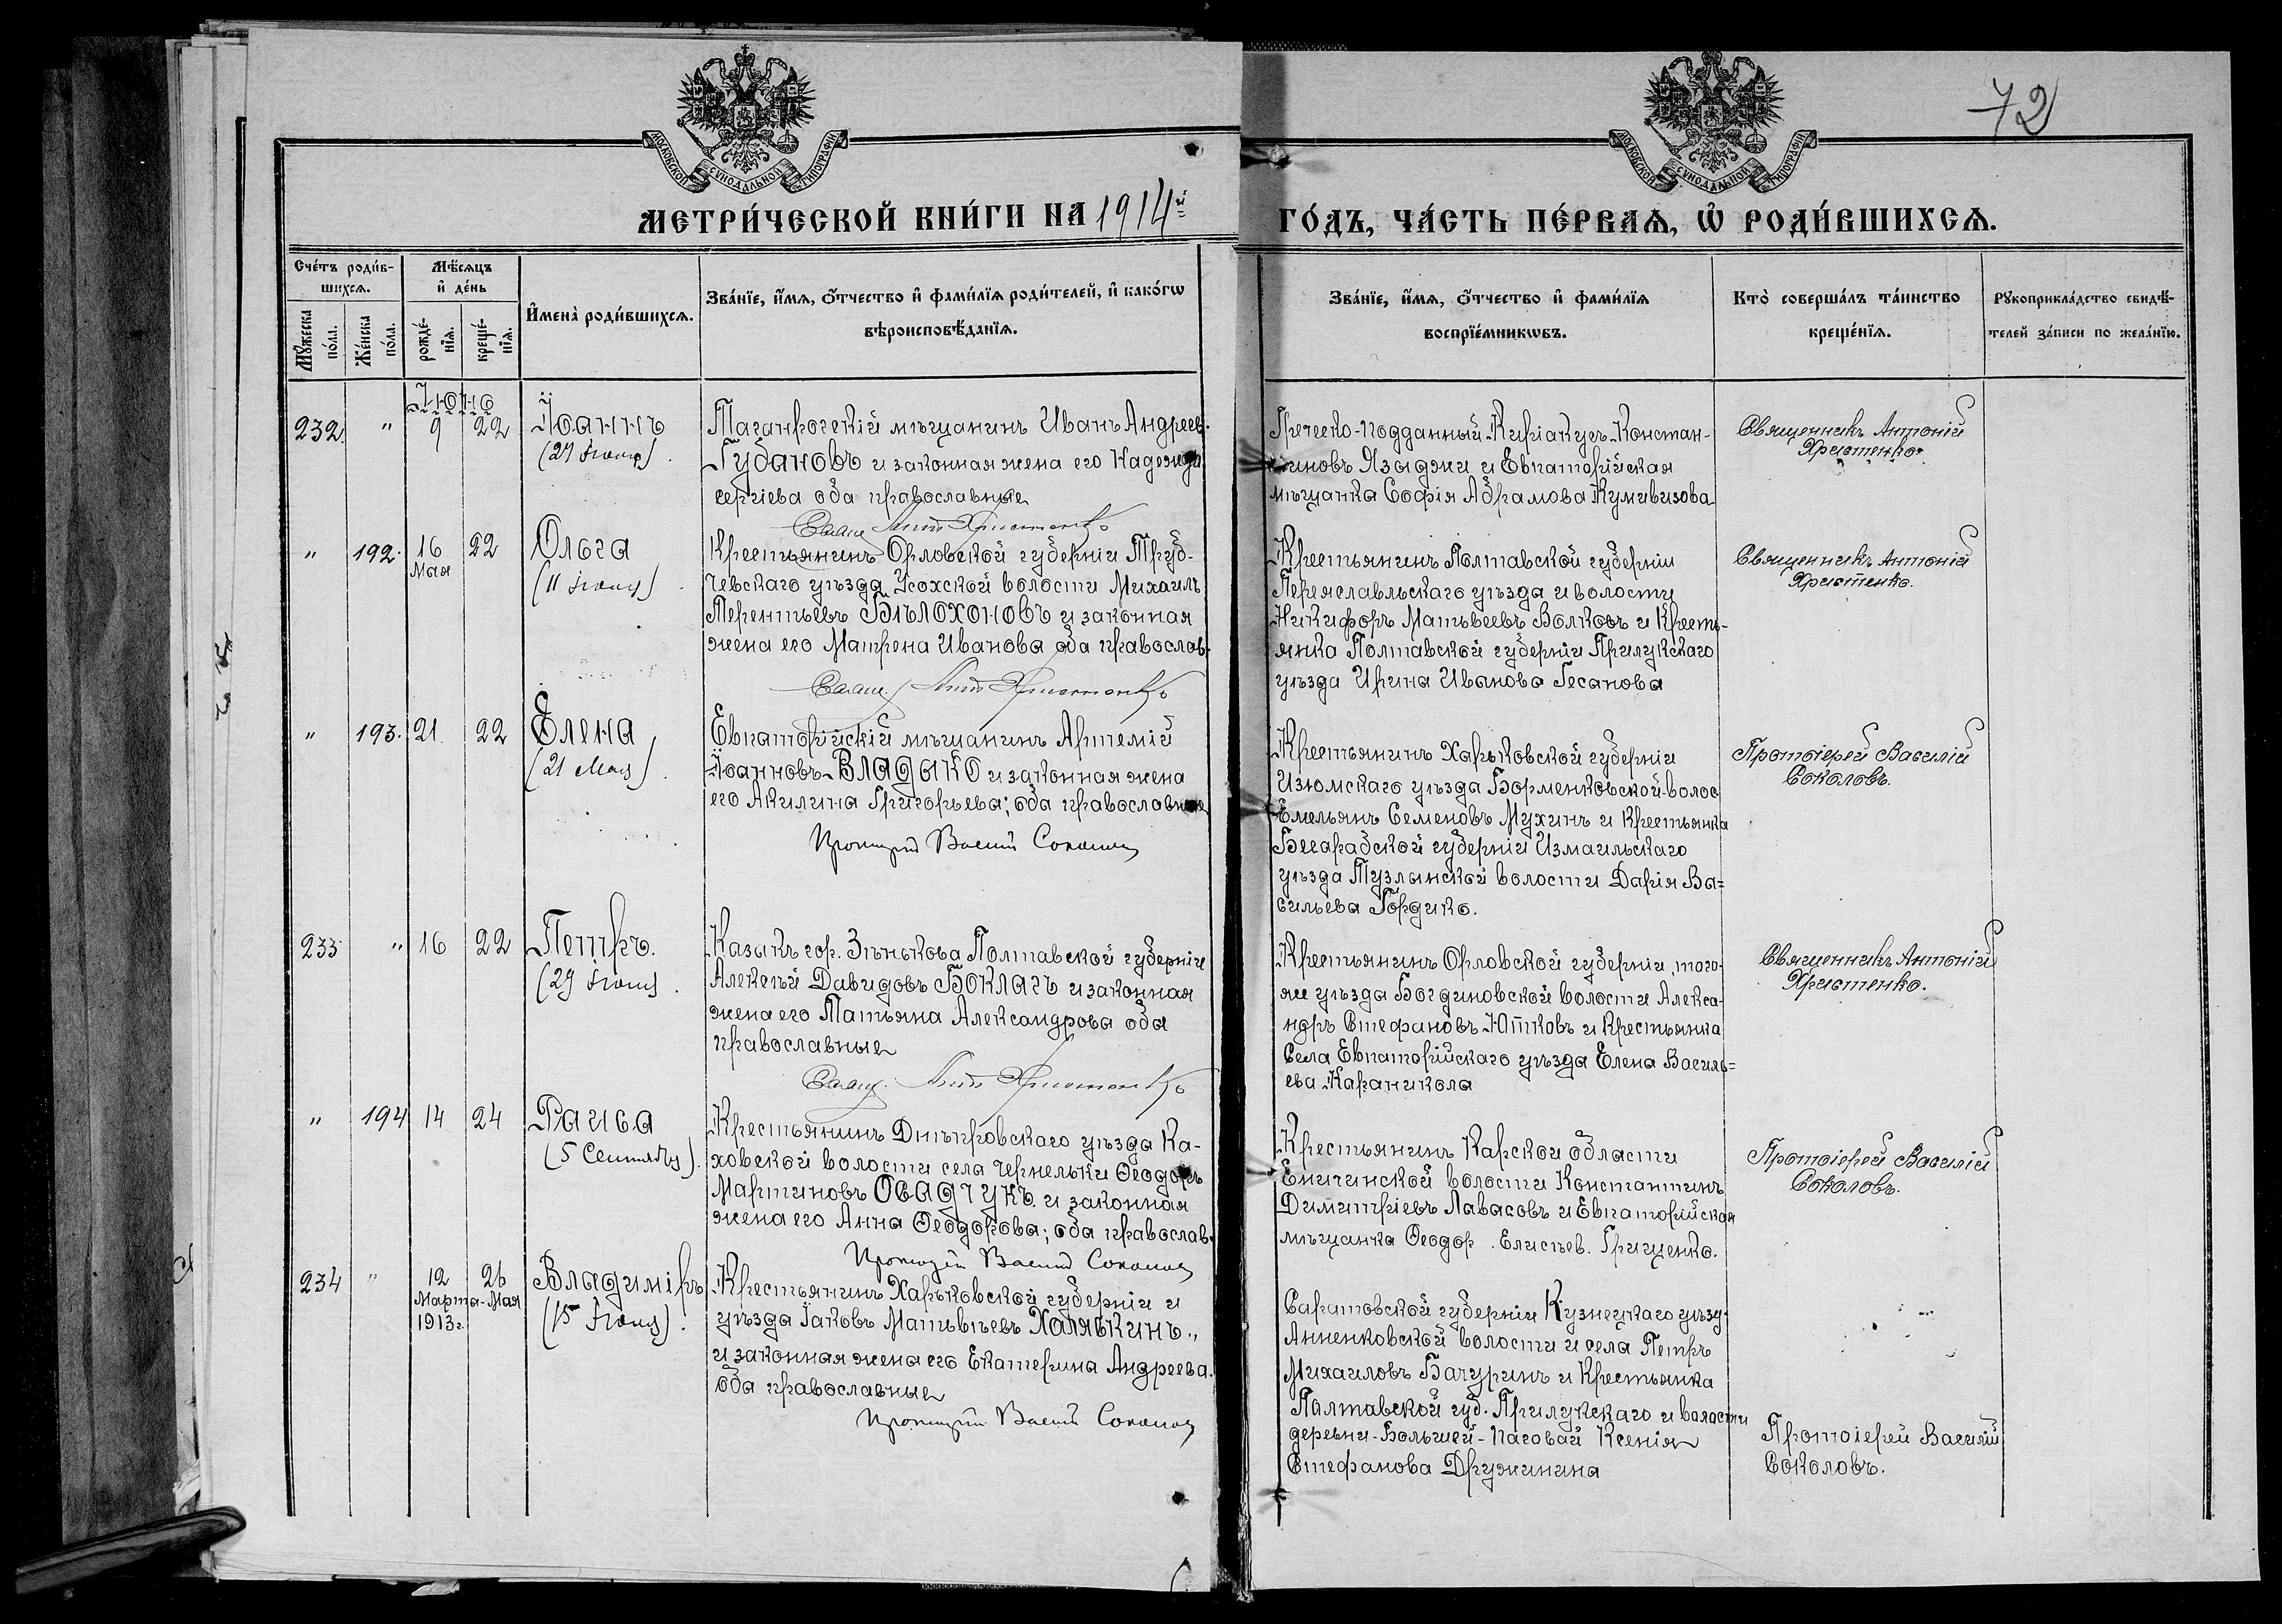 МОСКОВСКОЙ СУНОДАЛЬНОЙ ТИПОГРАФІИ
МОСКОВСКОЙ СУНОДАЛЬНОЙ ТИПОГРАФІИ
72
МЕТРИ́ЧЕСКОЙ КНИ́ГИ НА 1914й ГО́ДЪ, ЧА́СТЬ ПЕ́РВАѦ, Ѡ РОДИ́ВШИХСѦ.
Сче́тъ роди́в-
шихсѧ.
Мѣ́сѧцъ
и҆ де́нь
Мꙋ́жеска
по́ла.
Же́нска
по́ла.
рожде́-
нїѧ.
креще́-
нїѧ.
И҆мена̀ роди́вшихсѧ.
Зва́нїе, и҆́мѧ, ѻ҆́тчество и҆ фами́лїѧ роди́телей, и҆ како́гѡ
вѣроисповѣ́данїѧ.
Зва́нїе, и҆́мѧ, ѻ҆́тчество и҆ фами́лїѧ
воспрїе́мникѡвъ.
Кто̀ соверша́лъ та́инство
креще́нїѧ.
Рꙋкоприкла́дство свидѣ́-
телей за́писи по жела́нїю.
Іюнь
232 " 9 22 Іоаннъ
Таганрогскій мѣщанинъ Иванъ Андреев.
Губановъ и законная жена его Надежда
Сергіева оба православные
Свящ. Антоній Христенко
Греческо-подданный Киріакусъ Констан-
тиновъ Языджи и Евпаторійская
мѣщанка Софія Абрамова Кумивизова
Священникъ Антоній
Христенко.
" 192. 16 22 Ольга
Мая
Крестьянинъ Орловской губерніи Труб-
чевскаго уѣзда Усохской волости Михаилъ
Терентьевъ Бѣлохоновъ и законная
жена его Матрена Иванова оба православ.
Свящ. Антоній Христенко
Крестьянинъ Полтавской губерніи
Переяславльскаго уѣзда и волости
Никифоръ Матвѣевъ Волковъ и Кресть-
янка Полтавской губерніи Прилукскаго
уѣзда Ирина Иванова Гесанова
Священникъ Антоній
Христенко.
" 193. 21 22 Елена
(21 Мая)
Евпаторійскій мѣщанинъ Артемій
Іоанновъ Владыко и законная жена
его Акилина Григорьева; оба православные
Протоіерей Василій Соколовъ
Крестьянинъ Харьковской губерніи
Изюмскаго уѣзда Борменковской волос
Емельянъ Семеновъ Мухинъ и Крестьянка
Бесарабской губерніи Измаильскаго
уѣзда Тузлынской волости Дарія Ва=
сильева Гордико.
Протоіерей Василій
Соколовъ.
233 " 16 22 Петръ.
Казыкъ гор. Зѣнькова Полтавской губерніи
Алексѣй Давидовъ Боклагъ и законная
жена его Татьяна Александрова оба
православные
Свящ. Антоній Христенко
Крестьянинъ Орловской губерніи, того-
же уѣзда Богдиновской волости Алекса-
ндръ Стефановъ Ютковъ и Крестьянка
Села Евпаторійскаго уѣзда Елена Василь=
ева Караникола
Священникъ Антоній
Христенко.
" 194 14 24 Раиса
(5 Сентября).
Крестьянинъ Днѣпровскаго уѣзда Ка-
ховской волости села Чернельки Ѳеодоръ
Мартиновъ Осадчукъ и законная
жена его Анна Ѳеодорова; оба православ.
Протоіерей Василій Соколовъ
Крестьянинъ Карской области
Еничинской волости Константинъ
Димитріевъ Лавасовъ и Евпаторійская
мѣщанка Ѳеодор. Елисѣев. Грищенко.
Протоіерей Василій
Соколовъ.
234 " 12 26 Владиміръ
Марта-Мая
1913 г.
Крестьянинъ Харьковской губерніи и
уѣзда Іаковъ Матвѣевъ Халявкинъ "
и законная жена его Екатерина Андреева.
Оба православные
Протоіерей Василій Соколовъ
Саратовской губерніи Кузнецкаго уѣзд.
Анненковской волости и села Петръ
Михаиловъ Бачуринъ и Крестьянка
Полтавской губ. Прилукскаго и волости
деревни-Большей- Ксенія
Стефанова Дружинина
Протоіерей Василій
Соколовъ.